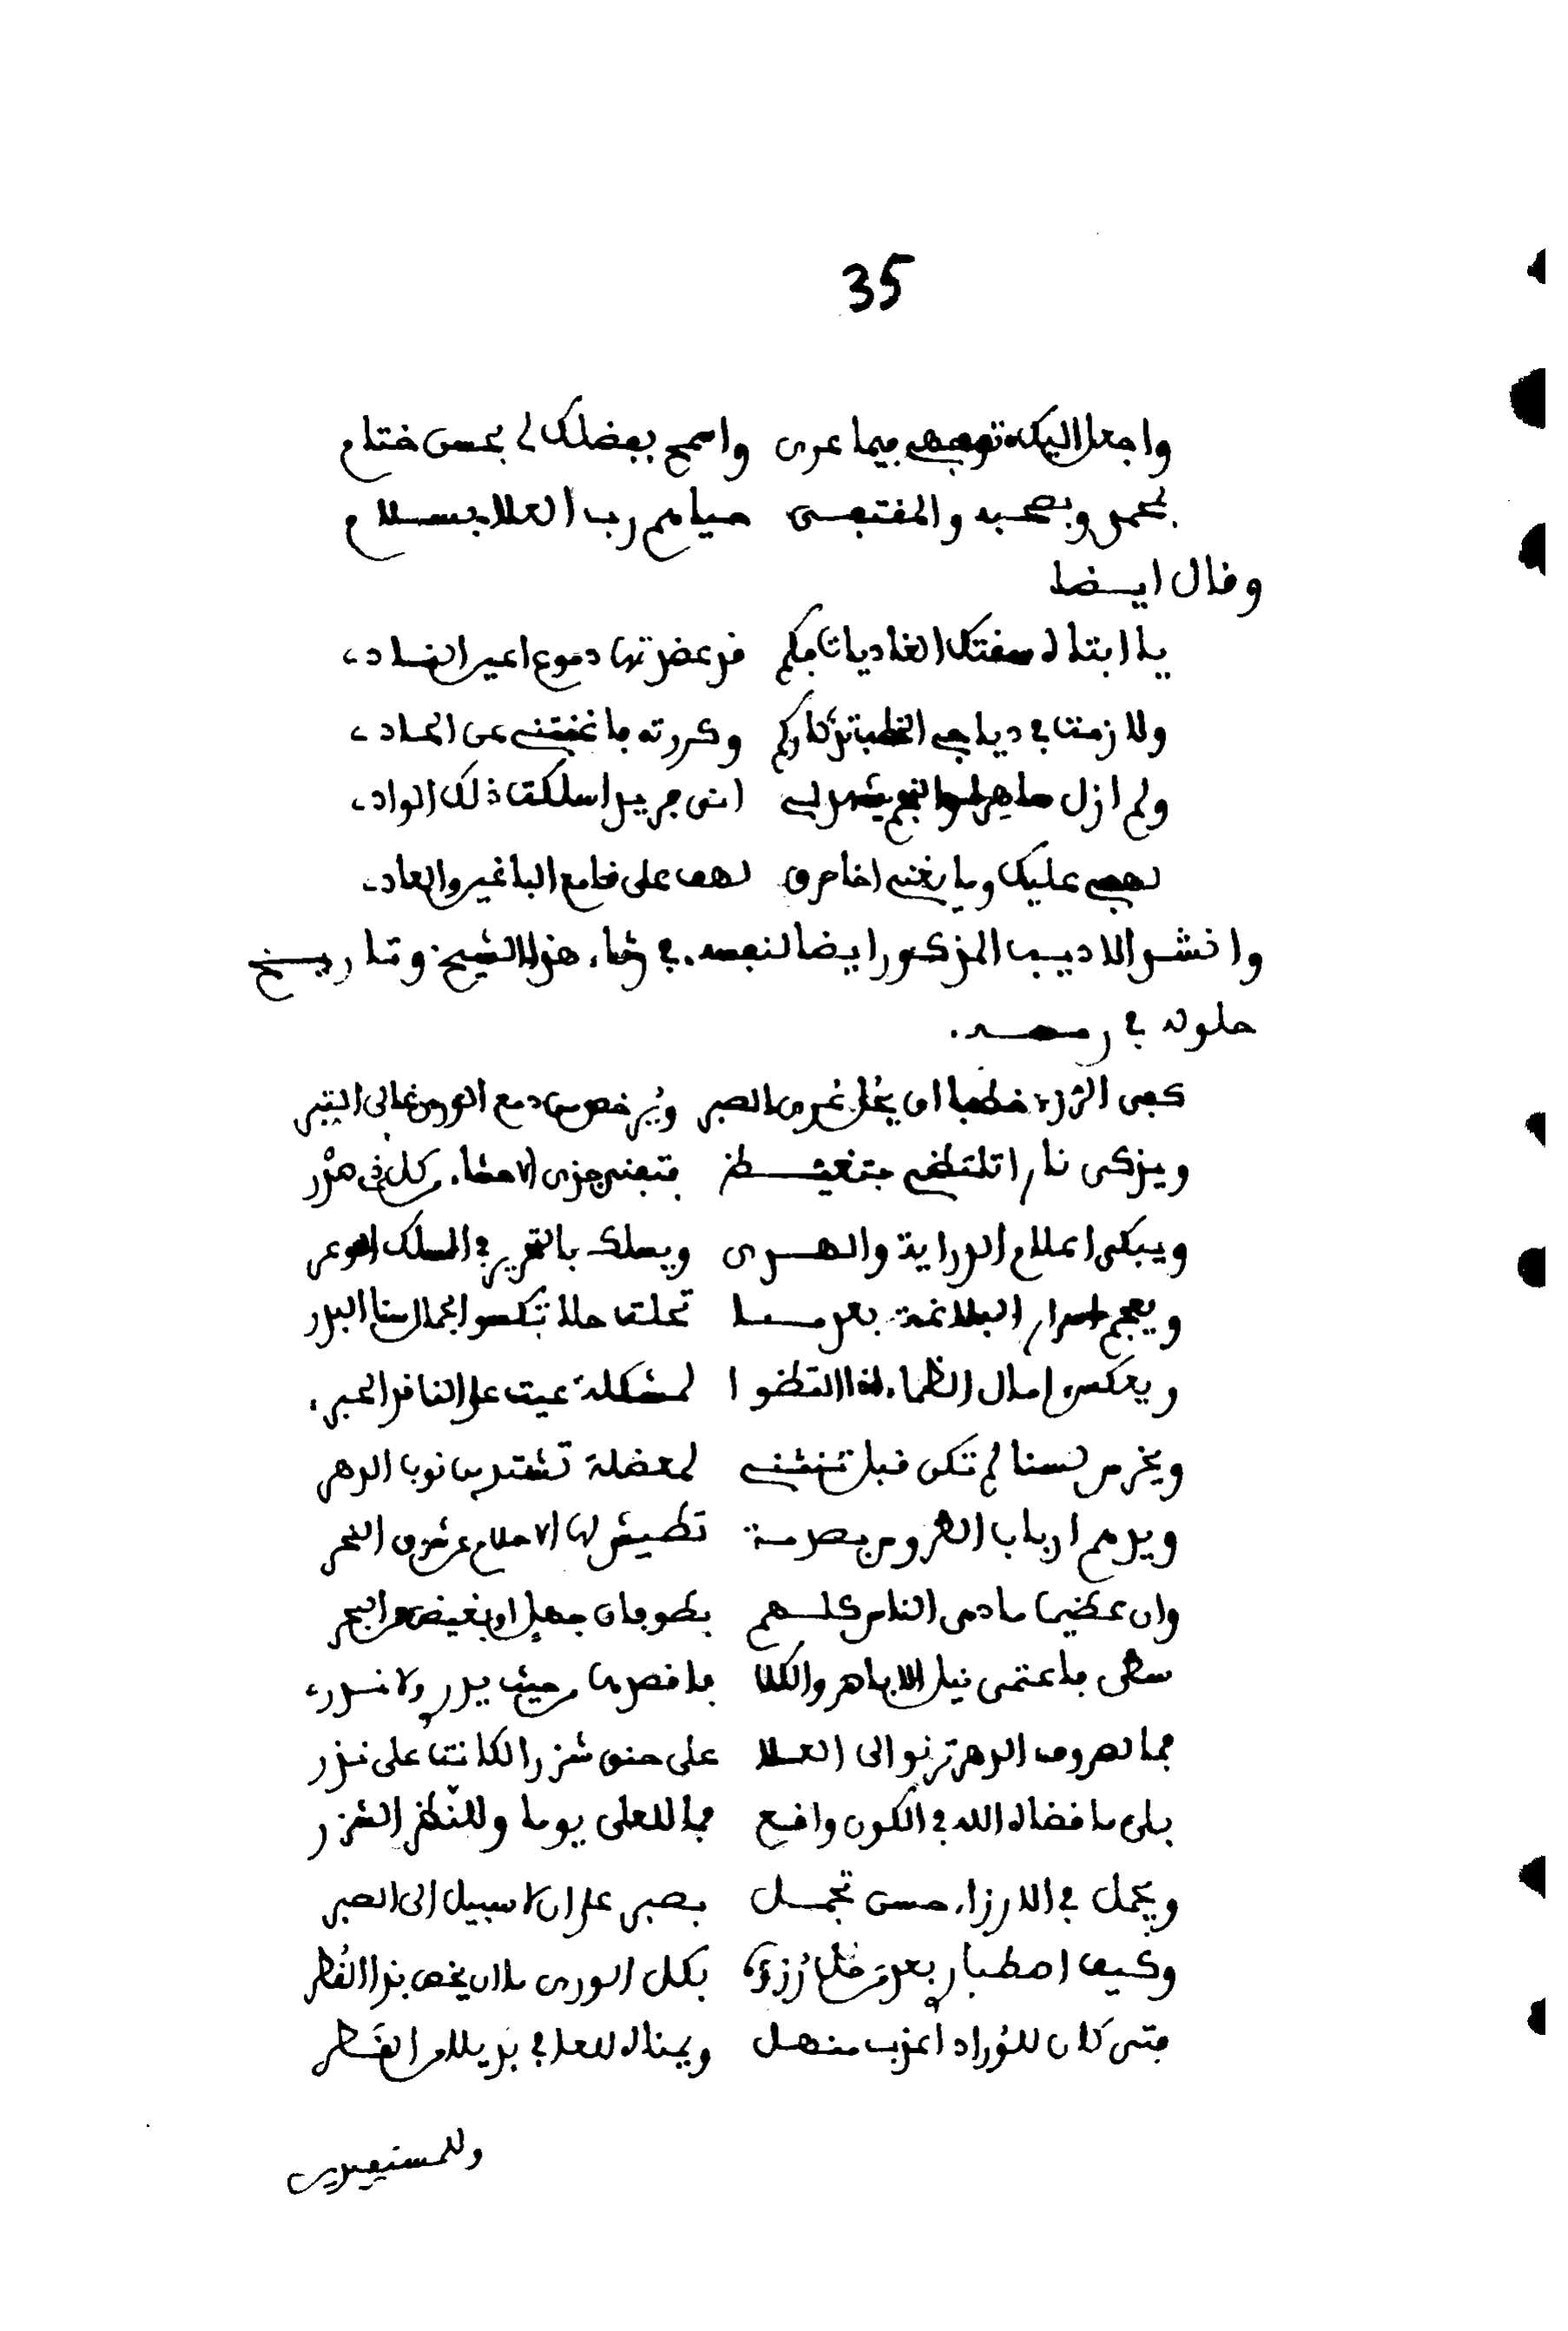 35
واجعل اليك توجهي فيما عرى واسمح بفضلك لي بحسن ختام
بمحمد وبصحبه والمقتفي حياهم رب العلا بسلام
وقال ايضا
يا ابتا لا سقتك الغاديات فكم قد عضدتها دموع اعين الغاد
ولازمت في دياجي الخطب تذكاركم وكررته فاغنتني عن الحاد
ولم ازل ساهرا والنجم يشهد لي اني جدير اسلكت ذلك الواد
لهفي عليك وما يغني اخا حرق لهف على قامع الباغين والعاد
وانشد الاديب المذكور ايضا لنفسه في رثاء هذا الشيخ وتاريخ
حلوله في رمسه
كفى الرزء خطبا ان يحل عرى الصبر ويرخص من دمع الورى غالي التبر
ويذكي نارا تلتظي بتغيظ فتفني جذى الاحشاء كل في هدر
ويبكي اعلام الدراية والهدى ويسلك بالتحرير في المسلك الوعر
ويعجم اسرار البلاغة بعد ما تحلت حلا تكسوا الجمال سنا البدر
ويعكس امال الظماء اذا التظوا لمشكلة عيت على الناقد الحبر
ويخرس لسنا لم تكن قبل تنثني لمعضلة تشتد من نوب الدهر
ويدهم ارباب الطروس بصدمة تطيش لها الاحلام عن شرف الفخر
وان عظيما ما دهى الناس كلهم بطوفان جهل او بغيض من البحر
سطى فاعتمى نيل الاباهر والكلا فاقصدها من حيث يدر ولا ندر
فما لصروف الدهر ترنو الى العلا على حنق شزرا لكانت على نزر
بلى ما قضاه الله في الكون واقع فما للعلى يوما وللنظر الشزر
ويجمل في الارزاء حسن تجمل بصبر على ان لا سبيل الى الصبر
وكيف اصطبار بعد من حل رزؤه بكل الورى ما ان يخص بذا القطر
فتى كان للوراد اعذب منهل ويمناه للعافي بديلا من القطر
وللمستفيدين